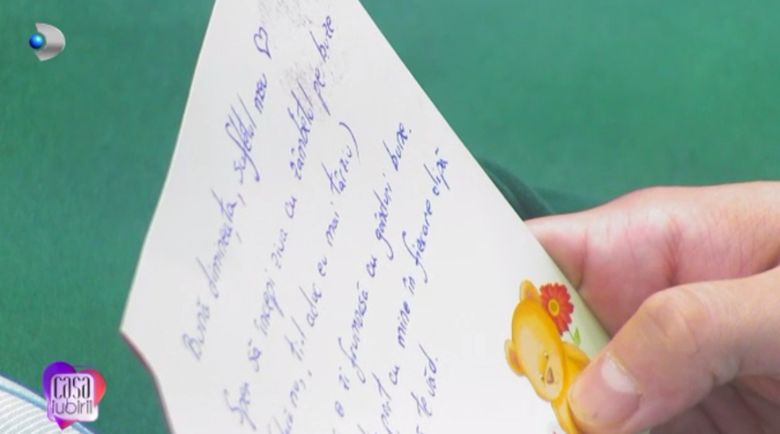 Bună dimineața, sufletul meu ♡
Sper să începi ziua cu zâmbetul pe buze
ți-l aduc eu mai târziu)
e și frumoasă cu gânduri bune.
cu mine în fiecare clipă
te văd.
casa
iubirii